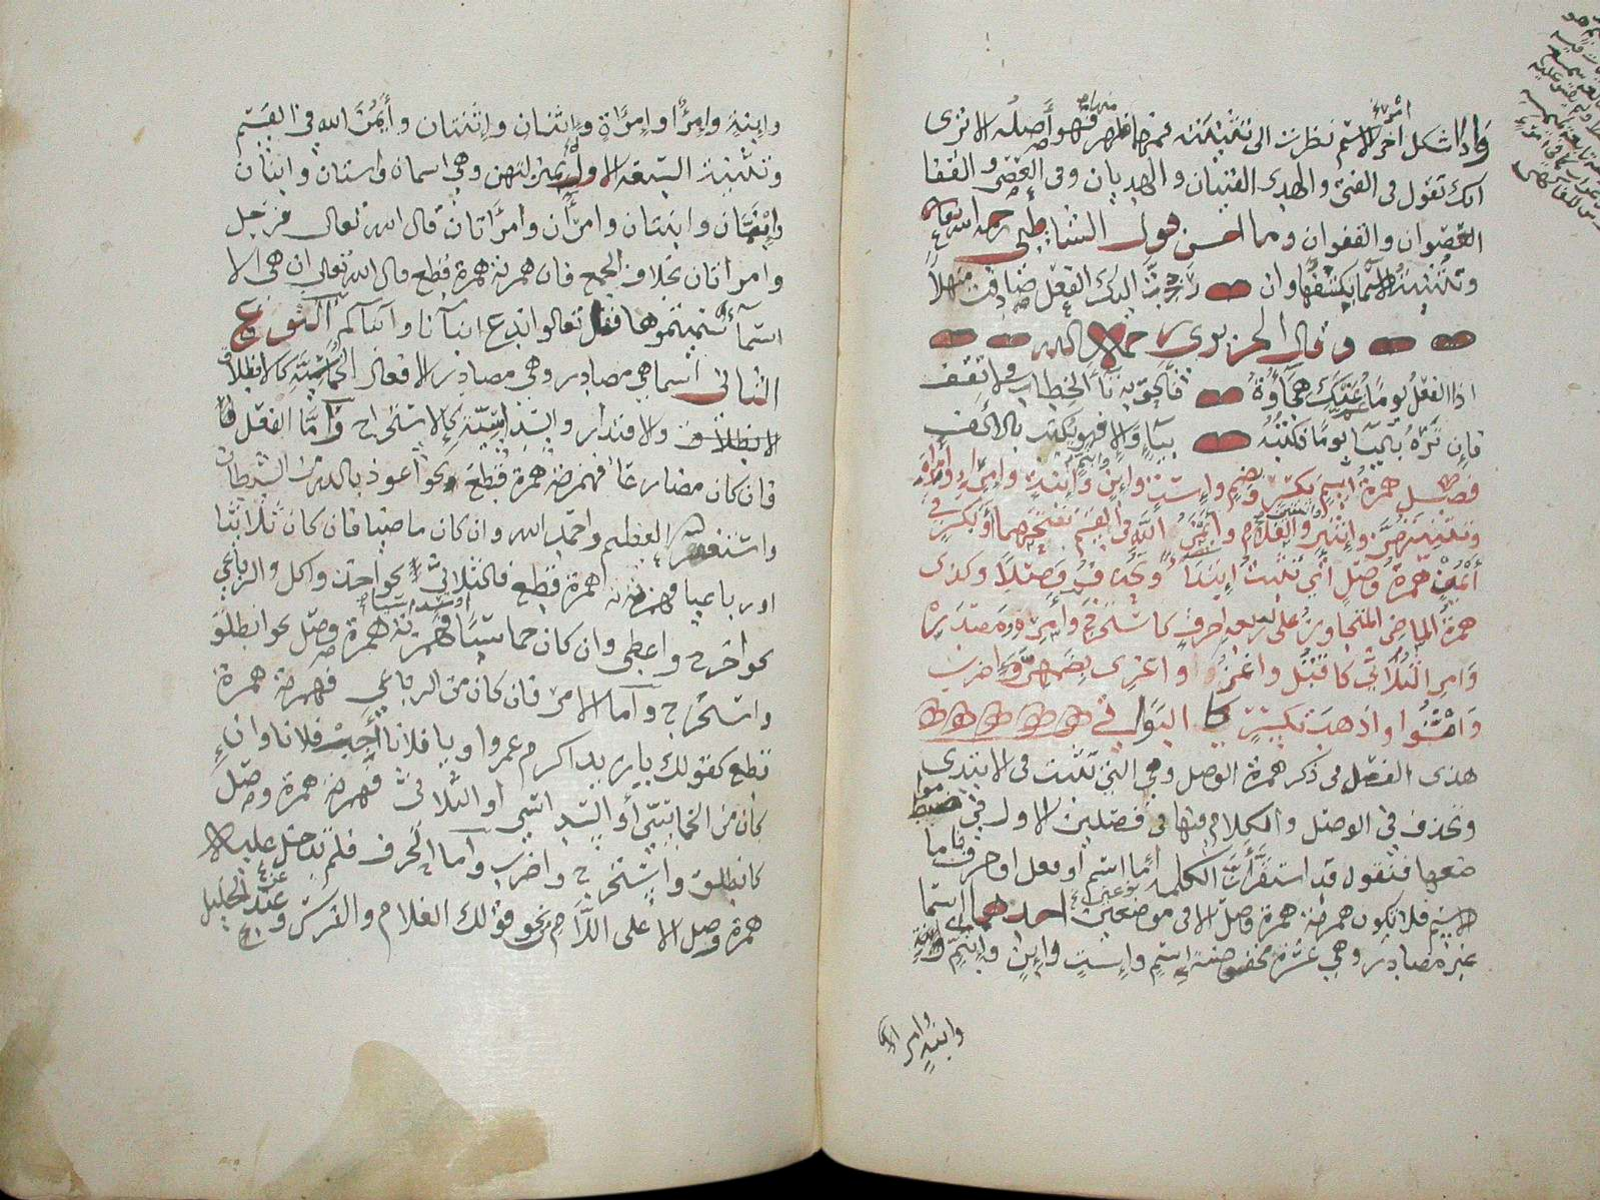 واذا اشكل اخر الاسم نظرت الى تثنيته فمهما ظهر فهو اصله الا ترى
انك تقول فى الفتى والهدى الفتيان والهديان وفى العصى والقفا
العصوان والقفوان وما احسن قول الشاطبى رحمه الله
وتثنية الاسما يكشفها وان رددت اليك الفعل صادفت منهلا
وقال الحريرى رحمه الله
اذا الفعل يوما غم عنك هجاؤه فالحق به تاء الخطاب ولا تقف
فان تره باليا يوما فكتبه بياء والا فهو يكتب بالالف
فصل همزة اسم بكسر وضم واست وابن وابنم وابنة وامرئ وامراة
وتثنيتهن واثنين والغلام وايمن الله فى القسم بفتحهما او بكسر فى
ايمن همزة وصل اى تثبت ابتداء وتحذف وصلا وكذى
همزة الماضى المتجاوز على اربعة احرف كاستخرج وامره ومصدره
وامر الثلاثى كاقتل واغز واغزى بضمهن واضرب
وامشوا واذهب بكسر كالبواقى
هذى الفصل فى ذكر همزة الوصل وهى التى تثبت فى الابتدى
وتحذف فى الوصل والكلام فيها فى فصلين الاول فى ضبط
مواضعها فنقول قد استقرات الكلمة اما اسم او فعل او حرف فاما
الاسم فلا يكون همزته همزة وصل الا فى موضعين احدهما اسما
غير مصادر وهى عشرة محفوظة اسم واست وابن وابنم وابنة
وابنة وامرا
وابنة وامرؤ وامراة واثنان واثنتان وايمن الله فى القسم
وتثنية السبعة الاول بمنزلتهن وهى اسمان واستان وابنان
وابنمان وابنتان وامرآن وامرأتان قال الله تعالى فرجل
وامراتان بخلاف الجمع فان همزته همزة قطع قال الله تعالى ان هى الا
اسماء سميتموها فقل تعالوا ندع ابنآنا وابناكم النوع
الثانى اسما هى مصادر وهى مصادر الافعال الخماسية كالانطلاق
والاقتدار والسداسية كالاستخراج واما الفعل
فان كان مضارعا فهمزته همزة قطع نحو اعوذ بالله من الشيطان
واستغفر الله العظيم واحمد الله وان كان ماضيا فان كان ثلاثيا
او رباعيا فهمزته همزة قطع فالثلاثى نحو اخذ واكل والرباعى
نحو اخرج واعطى وان كان خماسيا او سداسيا فهمزته همزة وصل نحو انطلق
واستخرج واما الامر فان كان من الرباعى فهمزته همزة
قطع كقولك يا زيد اكرم عمروا ويا فلان اجب فلانا وان
كان من الخماسى او السداسى او الثلاثى فهمزته همزة وصل
كانطلق واستخرج واضرب واما الحرف فلم تدخل عليه
همزة وصل الا على اللام نحو قولك الغلام والفرس وعند الخليل